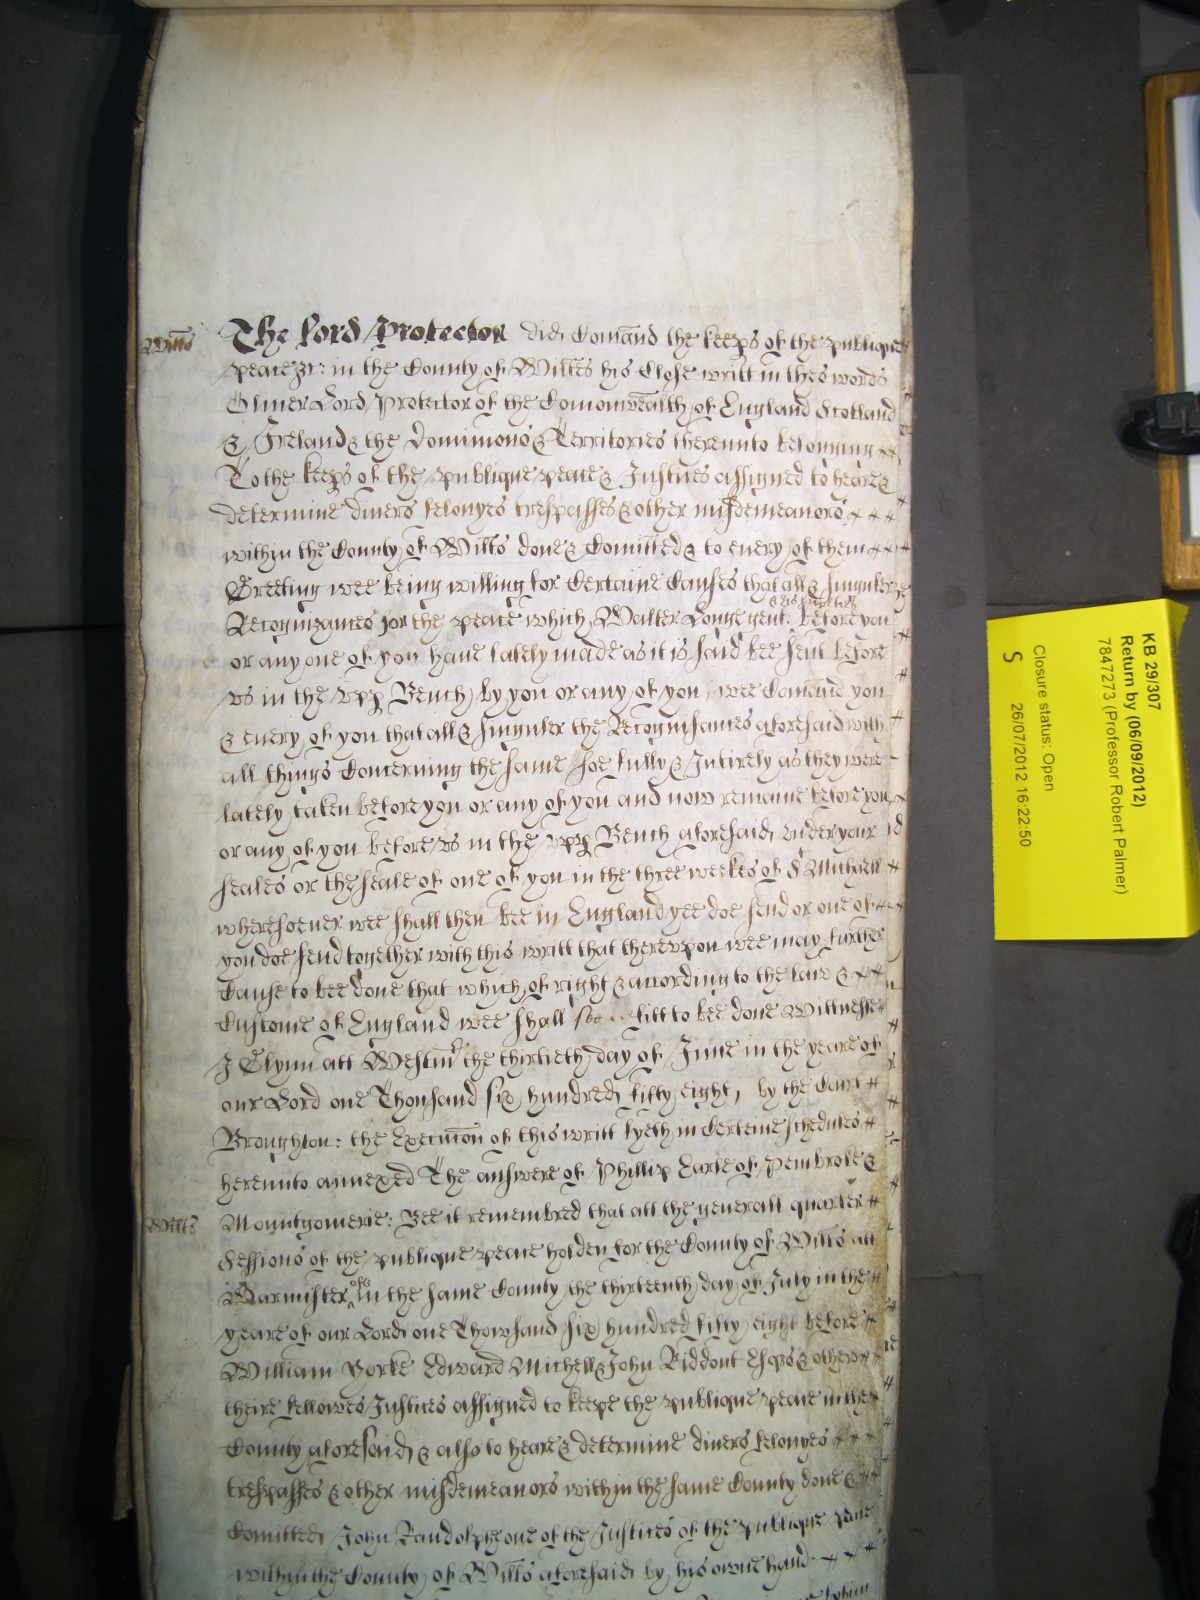 Wiltes
The Lord Protector did Comaund the keeps of the publique
peace &c: in the County of Wiltes his Close writt in thes words
Oliver Lord Protector of the Comonwealth of England Scotland
& Ireland & the Dominions & Territories thereunto belonging
To the keeps of the publique peace & Justices assigned to heare &
determine divers felonyes trespasses & other misdemeanors
within the County of Wilts done & Comitted & to every of them
Greeting wee being willing for Certaine Causes that all & singuler
Recognizances for the peace which Walter Longe gent: before you
or any one of you have lately made as it is said bee sent before
us in the upp Bench by you or any of you, wee Comaund you
& every of you that all & singuler the Recognisances aforesaid with
all things Concerning the same soe fully & Intirely as they were
lately taken before you or any of you and now remaine before you
or any of you before us in the upp Bench aforesaid under your
seales or the seale of one of you in the three weekes of St Michaell
wheresoever wee shall then bee in England yee doe send or one of
you doe send together with this writt that thereupon wee may further
Cause to bee done that which of right & according to the law &
Custome of England wee shall see fitt to bee done Wittnesse
J Glynn att Westmr the thirtieth day of June in the yeare of
our Lord one Thousand six hundred fifty eight, by the Court
Broughton: the Execucion of this writt lyeth in Certeine schedules
hereunto annexed The answere of Phillip Earle of Pembroke &
Wiltes
Mountgomerie: Bee it remembred that att the generall quarter
Sessions of the publique peace holden for the County of Wilts att
Warmister in the same County the thirteenth day of July in the
yeare of our Lord one Thowsand six hundred fifty eight before
William Yorke Edward Michell & John Riddout Esqs & others
theire fellowes Justices assigned to keepe the publique peace in the
County aforesaid & also to heare & determine divers felonyes
trespasses & other misdemeanors within the same County done &
Comitted John Randolphe one of the Justices of the publique peace
within the County of Wilts aforesaid by his owne hand
KB 29/307
Return by (06/09/2012)
7847273 (Professor Robert Palmer)
Closure status: Open
S
26/07/2012 16:22:50